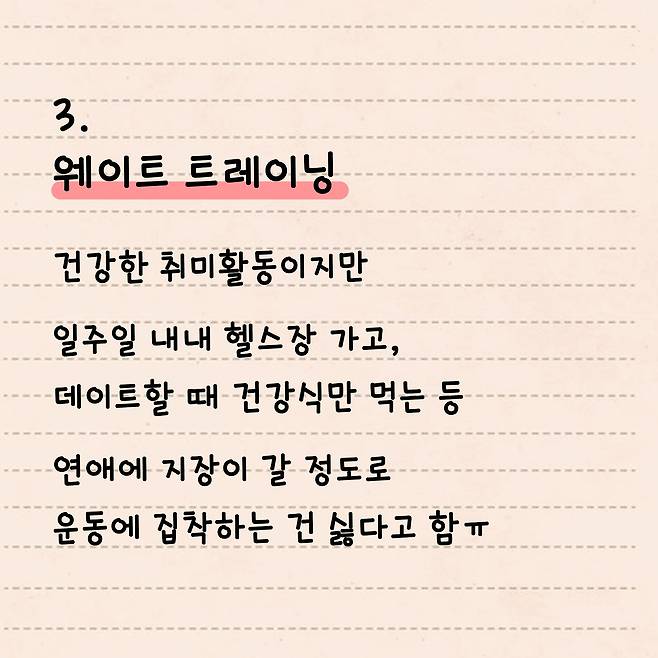 3.
웨이트 트레이닝
건강한 취미활동이지만
일주일 내내 헬스장 가고,
데이트할 때 건강식만 먹는 등
연애에 지장이 갈 정도로
운동에 집착하는 건 싫다고 함ㅠ